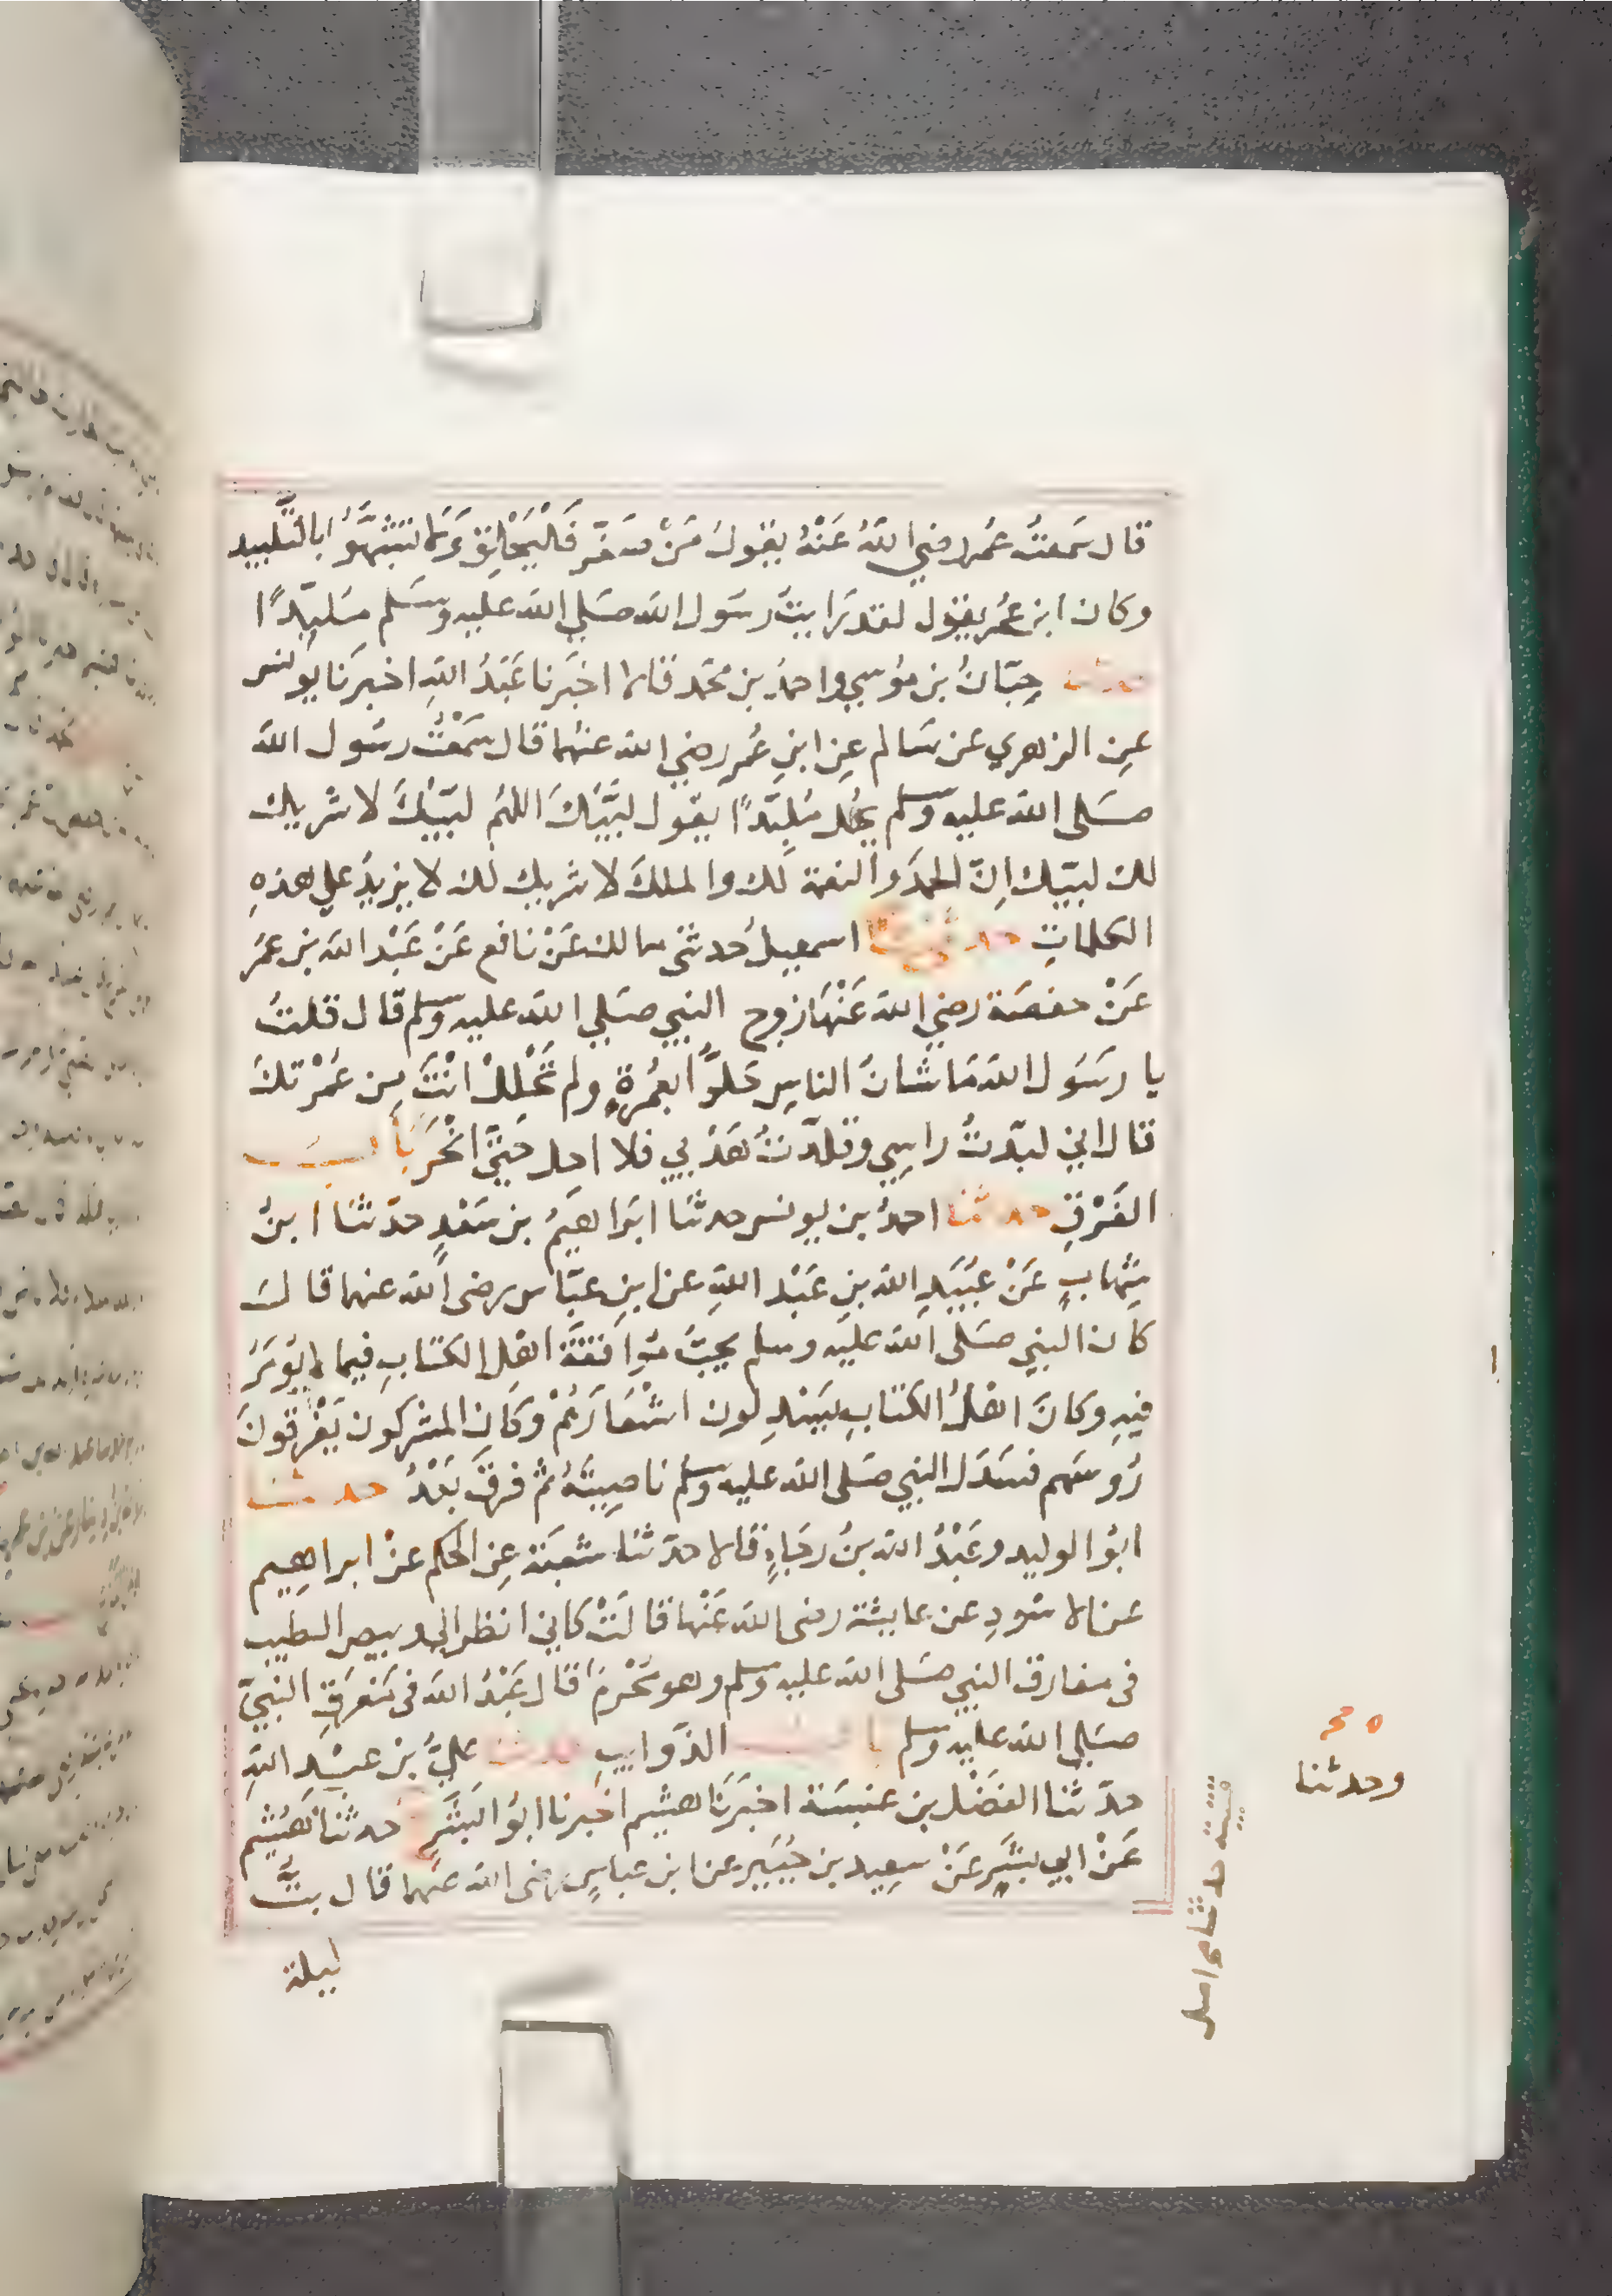 قال سَمعتُ عُمَر رضي اللهُ عَنْهُ يقولُ مَنْ ضفّر فَلْيَحْلِقْ وَلا تشبّهُوا بالتّلبيد
وكان ابن عُمَر يقول لقد رَايتُ رسَول الله صَلي الله عليه وسَلم مُلبّدًا
حدثنا حِبّانُ بن مُوسي واحمدُ بن محمّد قالا اخبَرنا عَبْدُ اللهِ اخبَرَنا يونس
عِن الزهري عَن سَالم عِن ابنِ عُمر رضي الله عنهُما قال سَمعْتُ رسُول الله
صَلى الله عليه وَسلم يُهل مُلبّدًا يقول لبَّيْكَ اللهُم لبّيْكَ لا شريك
لك لبّيك اِنّ الحمدَ والنعمة لَك والملكَ لا شريك لك لا يزيدُ علي هذهِ
الكلماتِ حدثنا اسمعيلُ حدثني مالك عَنْ نافع عَنْ عَبْدالله بن عمَر
عَنْ حفصَة رضي الله عَنْهَا زوج النبي صَلي الله عليه وسلم قال قلتُ
يا رسَول الله مَا شانُ الناسِ حَلوُّا بعمُرةٍ ولم تَحْلِلْ انْتَ مِن عُمْرتك
قال اني لبّدتُ راسِي وقلدّتُ هَدْيي فلا احل حَتيّ انْحَرَ باب
الفَرْقِ حدثنا احمدُ بن يونس حدثنا ابَراهيمُ بن سَعْدٍ حدّثنا ابنُ
شِهابٍ عَنْ عبَيَدِ الله بنِ عَبْد اللهِ عن ابنِ عبّاس رضى الله عنهما قالَ
كان النبي صَلى الله عليه وسلم يحبُّ مُوافقَةَ اهْل الكتابِ فيما لم يُؤمَرُ
فيهِ وكانَ اهْلُ الكتابِ يَسْدِلون اشْعَارَهُمْ وكَان المشركون يَفْرقونَ
رُوسَهم فسَدَل النبي صَلى الله عليه وسلم ناصِيتَهُ ثم فرقَ بَعْدُ حدثنا
ابوُ الوليد وعَبْدُ الله بنُ رجَاءٍ قَالا حدّثنَا شعبَة عِن الحكم عنْ ابراهِيم
عن الاسَودِ عن عايشة رضى الله عَنْها قالَتْ كاني انظر الي وبيص الطيب
فى مفارق النبي صَلى الله عليه وسلم وهو مُحْرمٌ قال عَبْدُ الله فى مَفرَقِ النبيّ
صَلي الله عليه وسلم باب الذَوايبِ حدثنا عليُّ بن عبْدِ اللهِ
حدّثنا الفَضْل بن عنبسَة اخبَرَنَا هشيم اخبَرنا ابوُ البشَرِ حدثنا هُشيْم
عَنْ ابي بشَرٍ عَنْ سعِيد بن جُبَيرٍ عن ابن عباسٍ رضى الله عنهما قال بتُّ
ليلة
ه صح
وحدثنا
قتيبة حدثنا